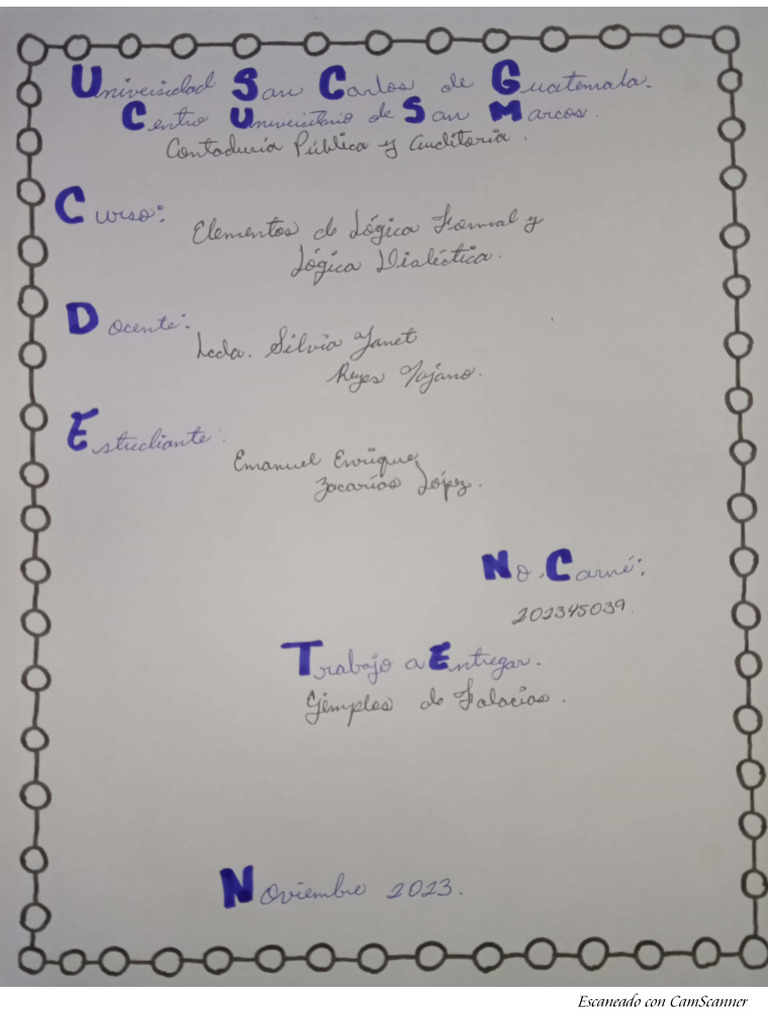 Universidad San Carlos de Guatemala.
Centro Universitario de San Marcos.
Contaduría Pública y Auditoria.
Curso:
Elementos de Lógica Formal y
Lógica Dialéctica.
Docente:
Lcda. Silvia Yanet
Reyes
Estudiante:
Emanuel Enrique
Zacarías López.
No. Carné:
202345039.
Trabajo a Entregar.
Ejmplos de Falacias.
Noviembre 2023.
Escaneado con CamScanner